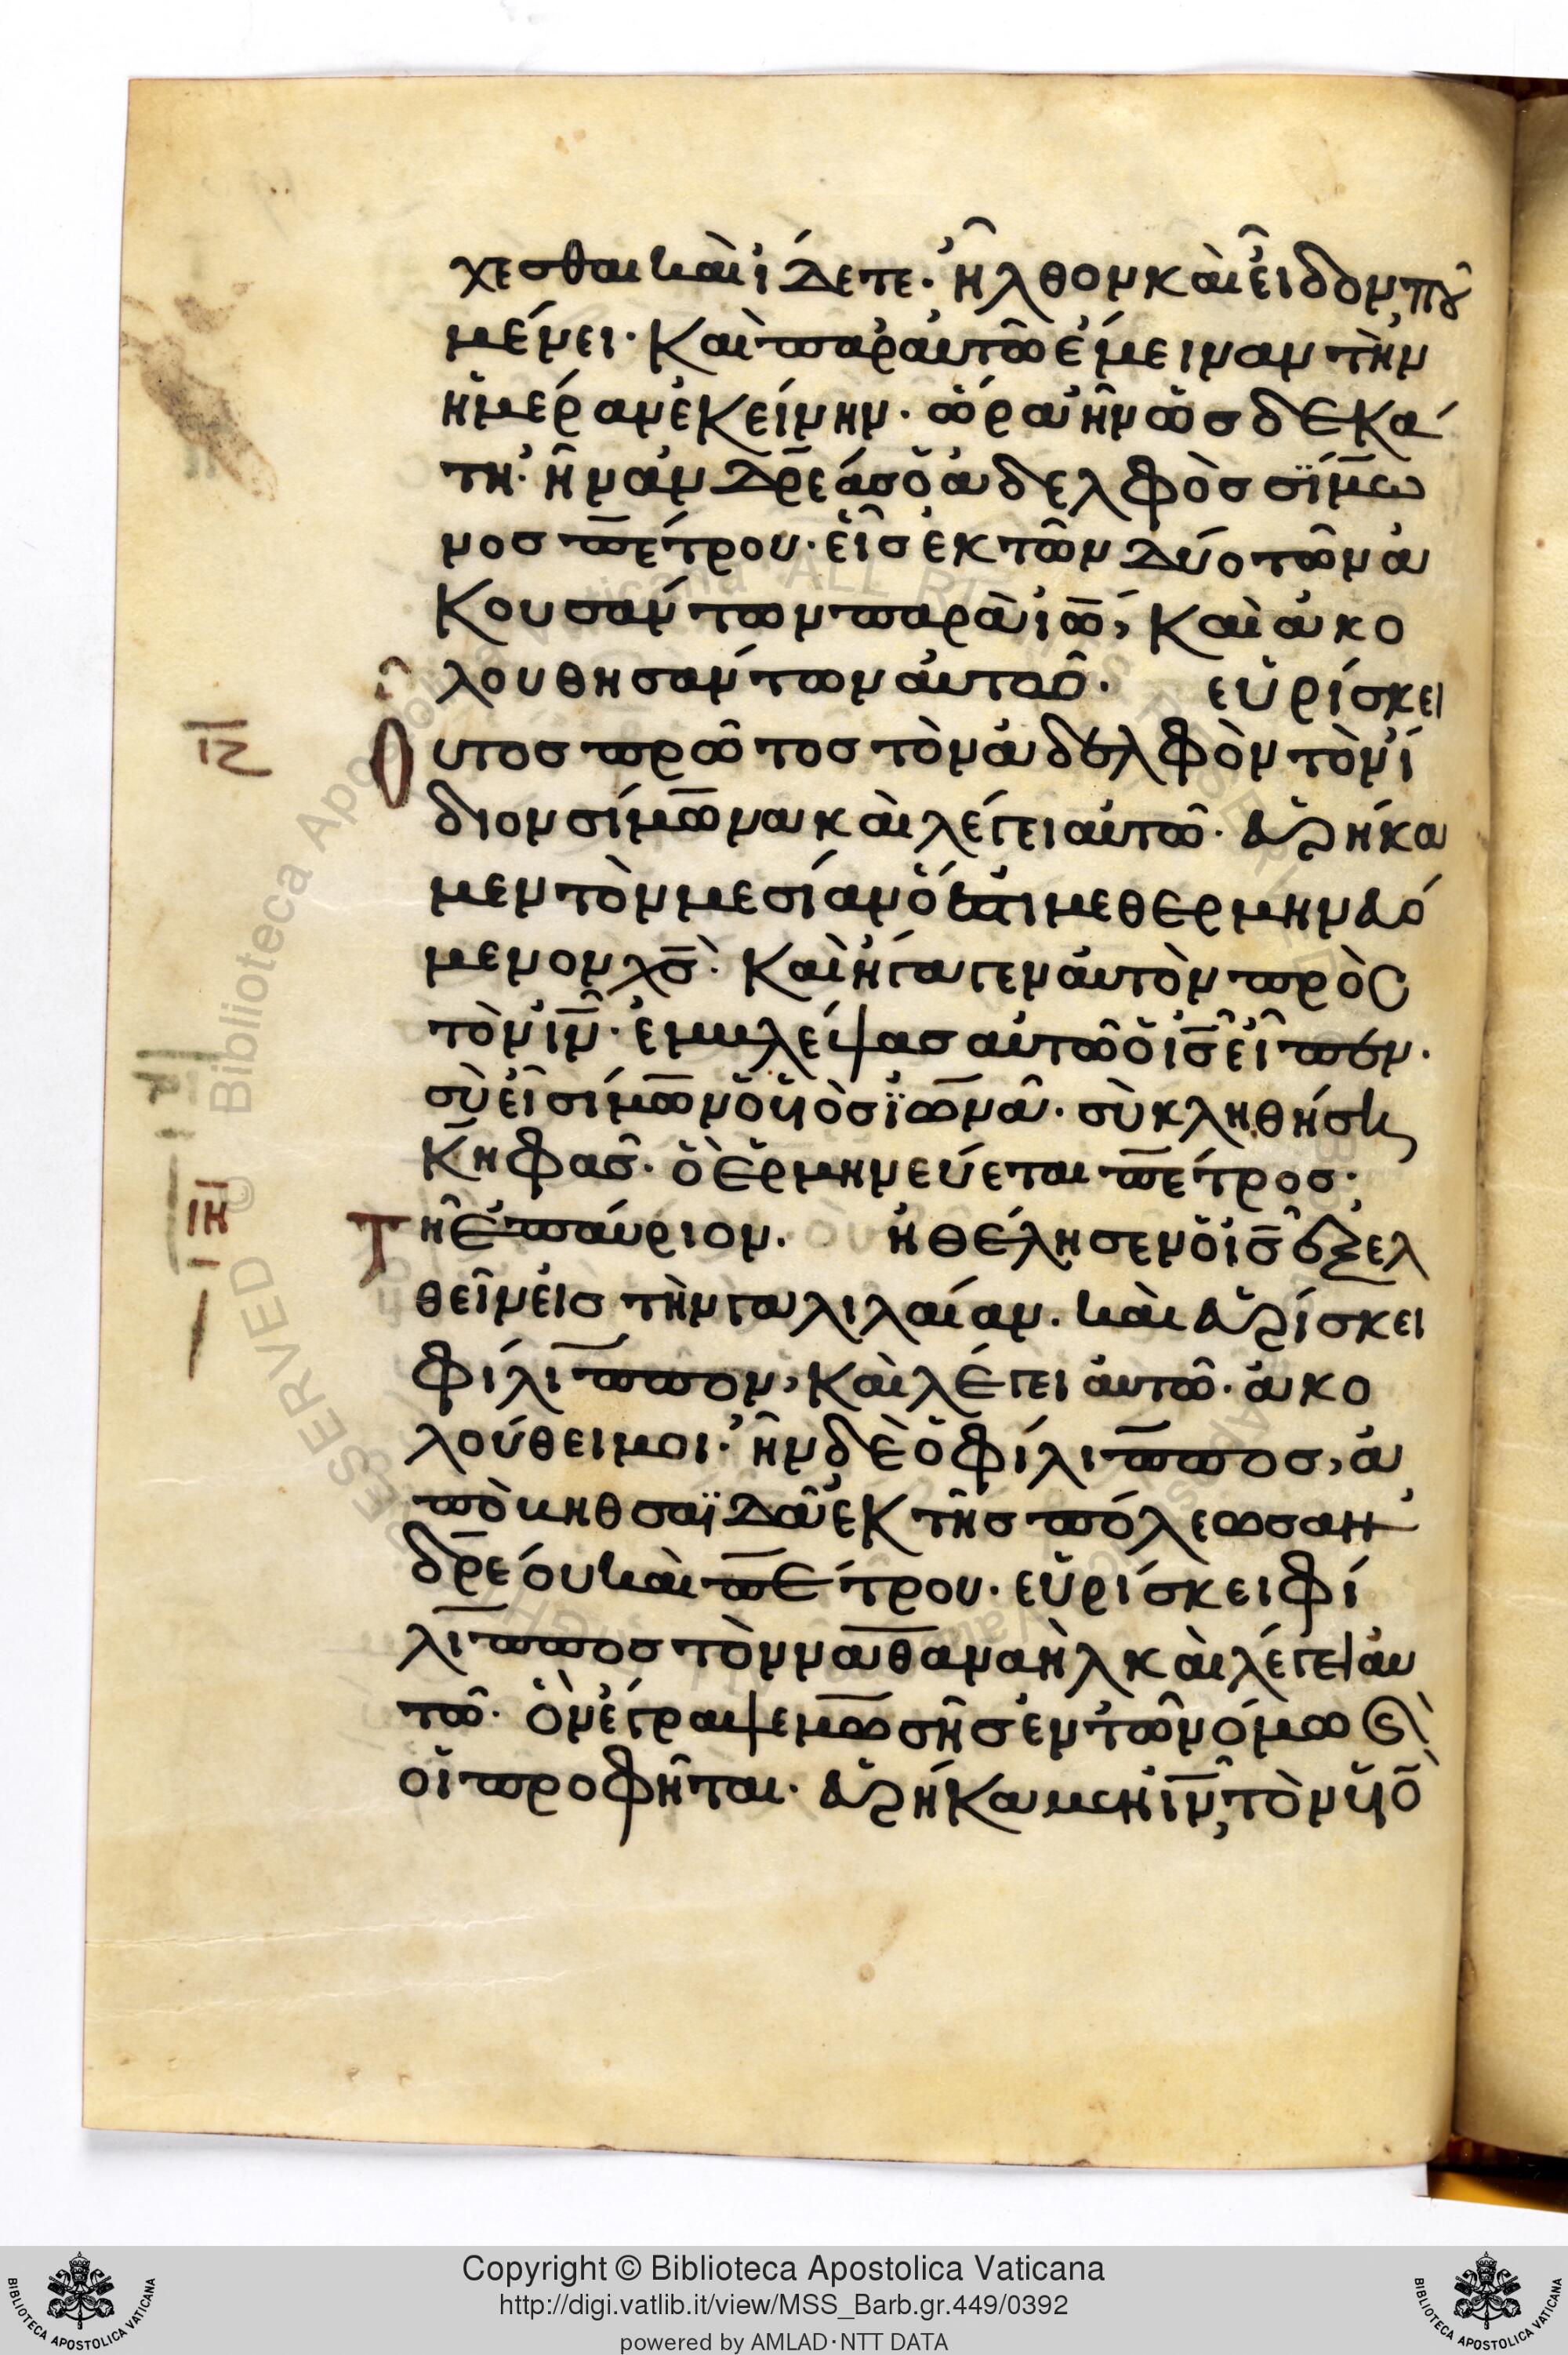 χεσθαι καὶ ἴδετε· ἦλθον καὶ εἶδον, ποῦ
μένει· Καὶ παραυτῶ ἔμειναν τὴν
ἡμέραν ἐκείνην· ὥρα ἦν ὡς δεκά
τη· ἦν ἀνδρέας ὁ ἀδελφὸς σίμω
νος πέτρου· εἷς ἐκ τῶν δύο τῶν ἀ
κουσάντων παρὰ ἰω, Καὶ ἀκο
λουθησάντων αὐτῶ· εὑρίσκει
Ουτος πρῶτος τὸν ἀδελφὸν τὸν ἴ
διον σίμωνα καὶ λέγει αὐτῶ· εὑρήκα
μεν τὸν μεσίαν ὅ ἐστι μεθερμηνευό
μενον χς· Καὶ ἤγαγεν αὐτὸν πρὸς
τὸν ιν· ἐμβλέψας αὐτῶ ὁ ις εἶπεν·
σὺ εἶ σίμων ὁ υἱὸς ϊωνᾶ· σὺ κληθήση
Κηφᾶς· ὃ ἑρμηνεύεται πέτρος·
Τῆ ἐπαύριον· ἠθέλησεν ὁ ις ἐξελ
θεῖν εἰς τὴν γαλιλαίαν· καὶ εὑρίσκει
φίλιππον, Καὶ λέγει αὐτῶ· ἀκο
λούθει μοι· ἦν δὲ ὁ φίλιππος, ἀ
πὸ βηθσαϊδᾶ ἐκ τῆς πόλεως ἀν
δρέου καὶ πέτρου· εὑρίσκει φί
λιππος τὸν ναθαναὴλ καὶ λέγει αὐ
τῶ· ὃν ἔγραψε μωσῆς ἐν τῶ νόμω καὶ
οἱ προφῆται· εὑρήκαμεν ιν, τὸν υἱὸ
ΙΗ
Copyright © Biblioteca Apostolica Vaticana
http://digi.vatlib.it/view/MSS_Barb.gr.449/0392
powered by AMLAD·NTT DATA